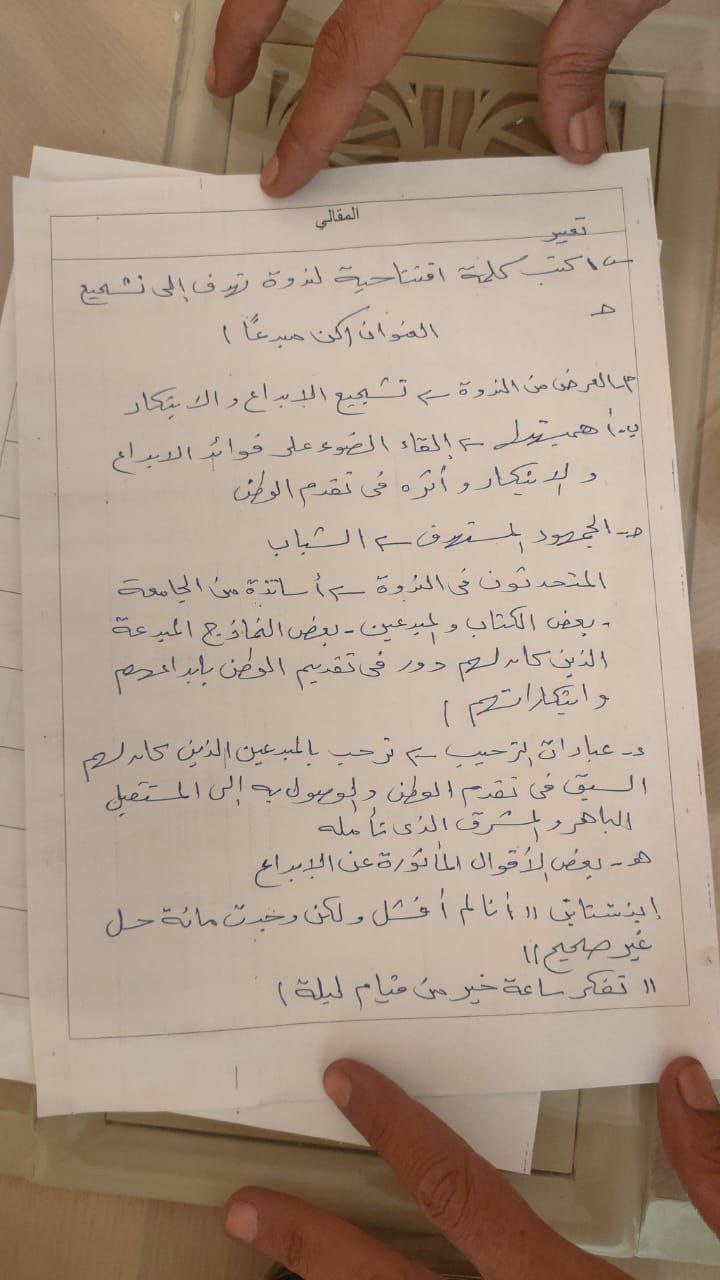 المقالي
تعبير
س١ اكتب كلمة افتتاحية لندوة تهدف إلى تشجيع
العنوان (كن مبدعًا)
الغرض من الندوة ← تشجيع الإبداع والابتكار
← إلقاء الضوء على فوائد الابداع
والابتكار وأثره فى تقدم الوطن
ج- الجمهور المستهدف ← الشباب
المتحدثون فى الندوة ← أساتذة من الجامعة
- بعض الكتاب والمبدعين - بعض النماذج المبدعة
الذين كان لهم دور فى تقديم الوطن بابداعهم
وابتكاراتهم)
د- عبارات الترحيب ← نرحب بالمبدعين الذين كان لهم
السبق فى تقدم الوطن والوصول به إلى المستقبل
الباهر والمشرق الذى نأمله
هـ - بعض الأقوال المأثورة عن الإبداع
إينشتاين "أنا لم أفشل ولكن وجدت مائة حل
غير صحيح"
" تفكر ساعة خير من قيام ليلة)